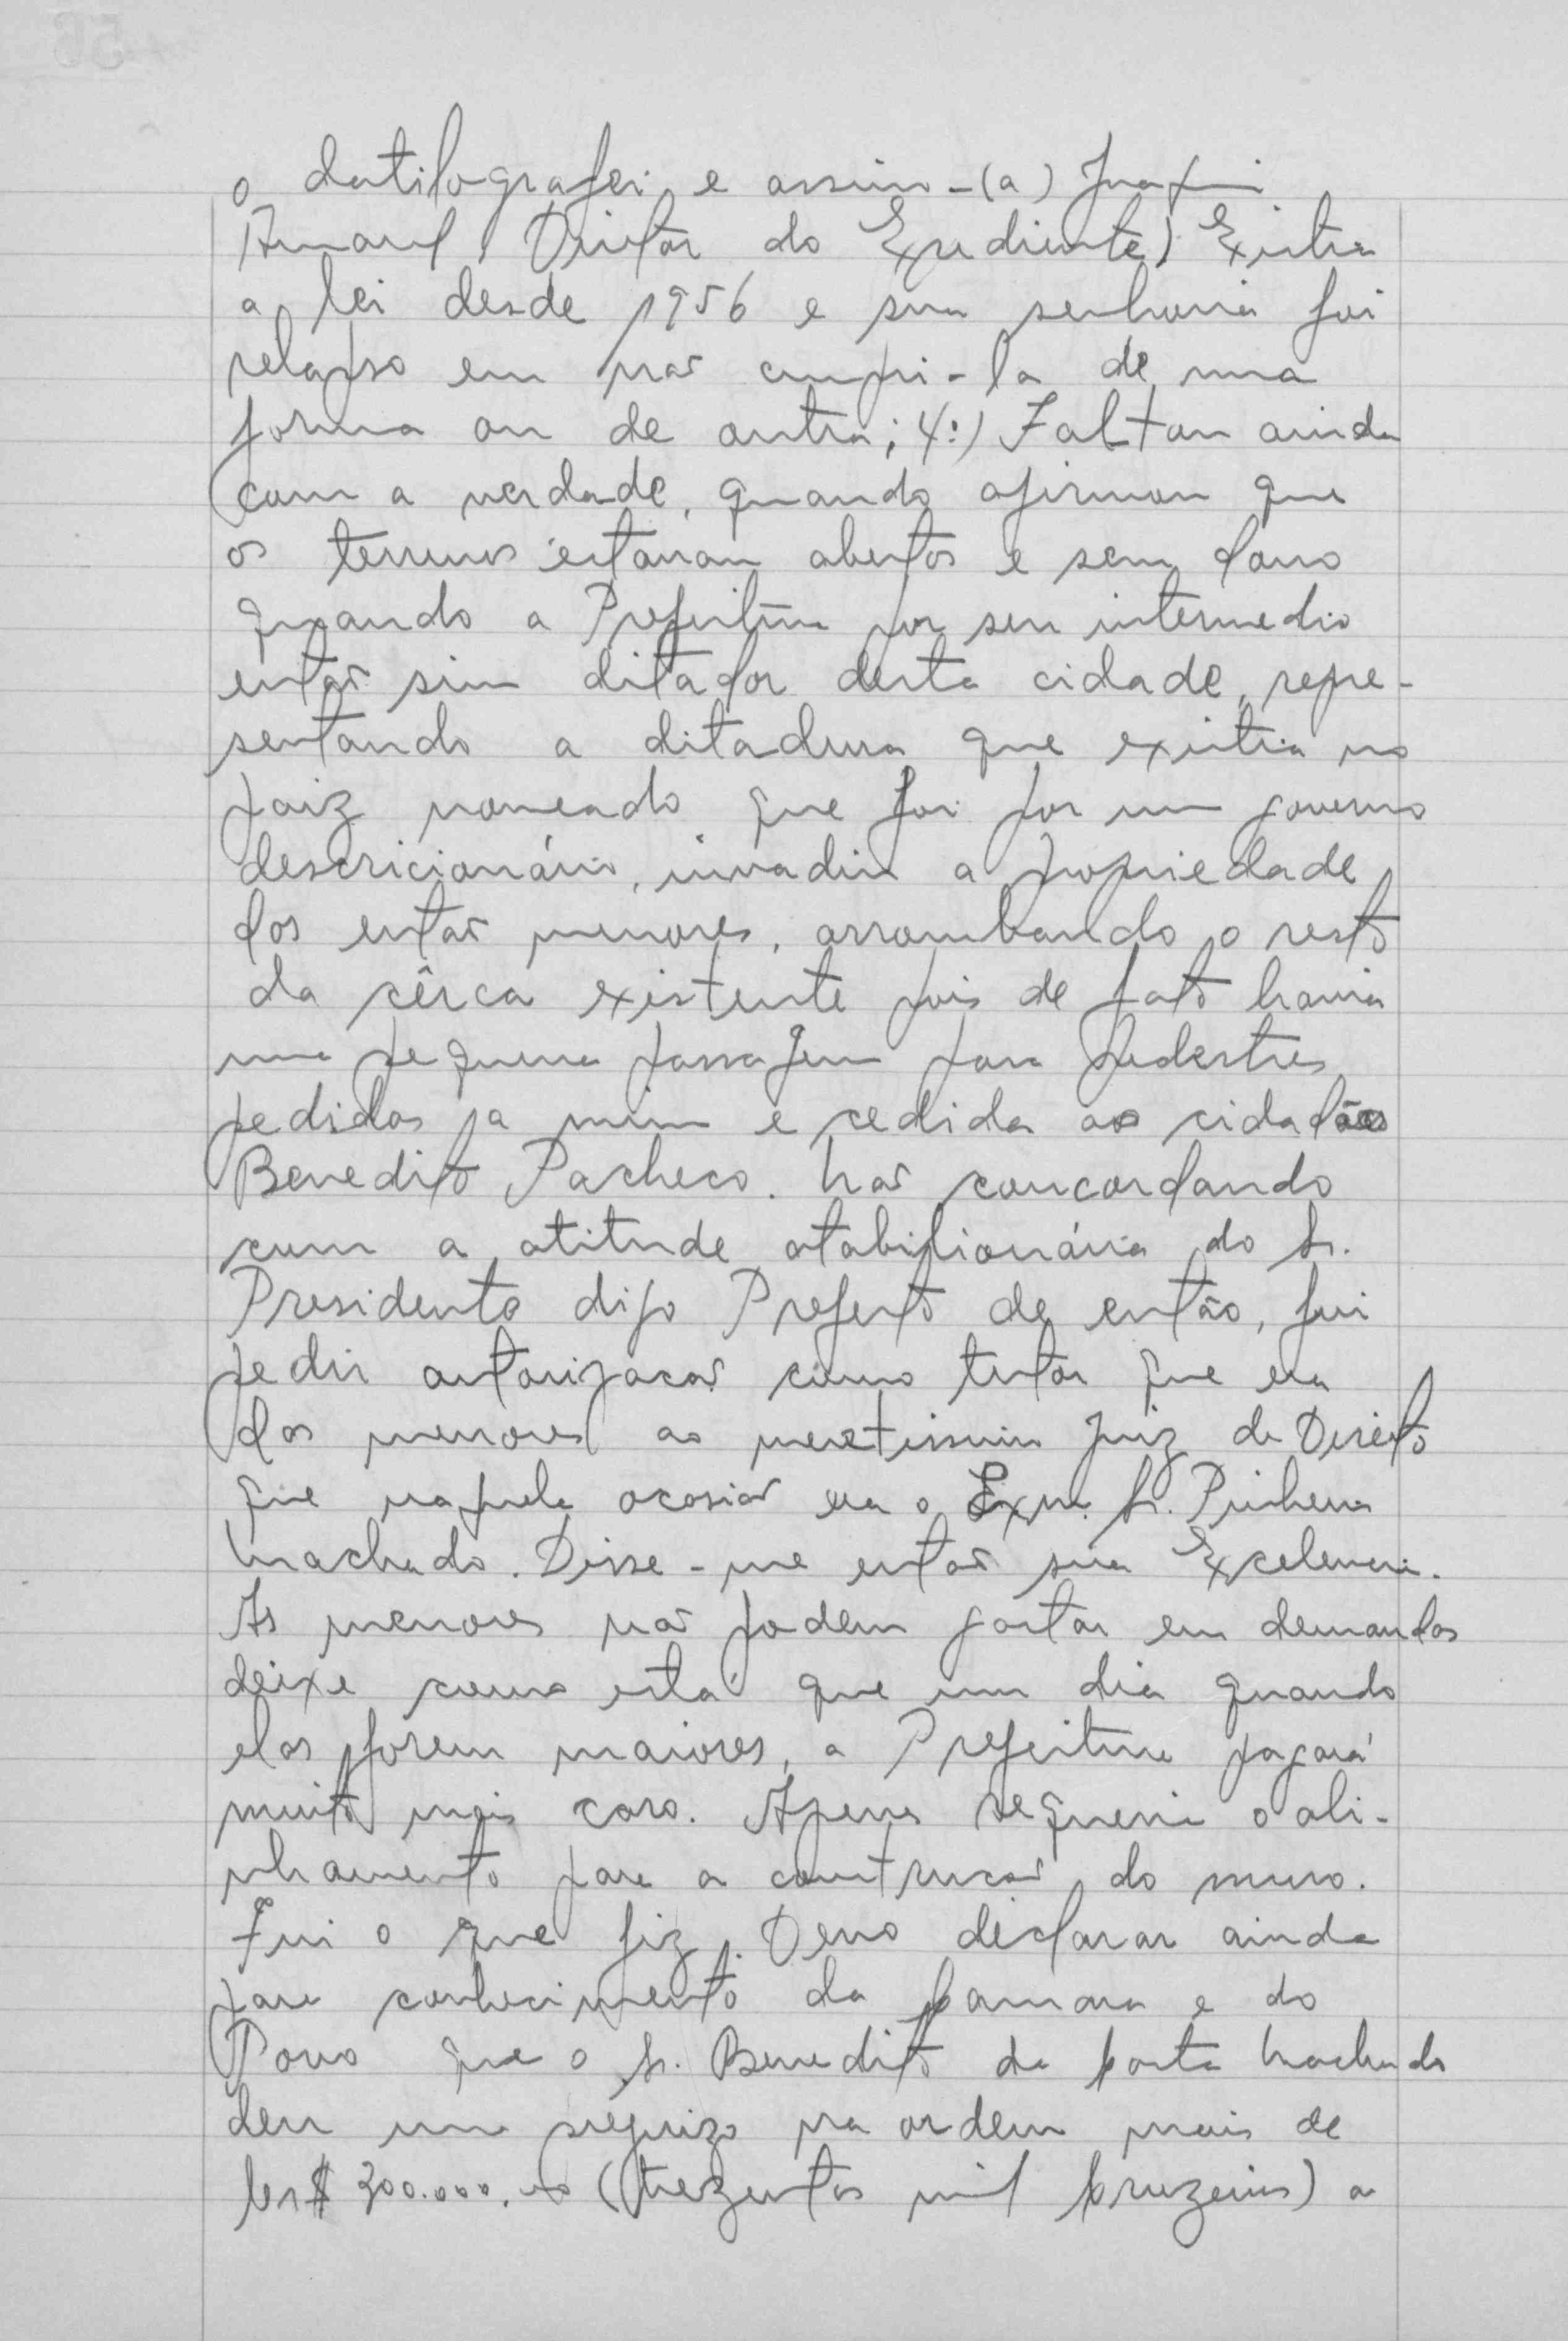 o datilografei e assino - (a) Joaquim
Amaral, Diretor do Expediente) Existia
a lei desde 1956 e sua senhoria foi
relapso em não cumpri-la de uma
forma ou de outra; 4º) Faltou ainda
com a verdade, quando afirmou que
os terrenos estavam abertos e sem dono
quando a Prefeitura por seu intermedio
então sim ditador desta cidade, repre-
sentando a ditadura que existia no
paiz nomeado que foi por um governo
descricionário, invadiu a propriedade
dos então menores, arrombando o resto
da cêrca existente pois de fato havia
uma pequena passagem para pedestres
pedidos a mim e cedida ao cidadão
Benedito Pacheco. Não concordando
com a atitude atabilionária do Sr.
Presidente digo Prefeito de então, fui
pedir autorização como tutor que era
dos menores ao meretissimo Juiz de Direito
que naquela ocasião era o Exmo. Sr. Pinheiro
Machado. Disse-me então sua Excelencia.
Os menores não podem gastar em demandas
deixe como está que um dia quando
elas forem maiores, a Prefeitura pagará
muito mais caro. Apenas requeria o ali-
nhamento para a construção do muro.
Fui o que fiz. Devo declarar ainda
para conhecimento da Camara e do
Povo que o Sr. Benedito da Costa Machado
deu um prejuizo na ordem mais de
Cr$ 300.000,00 (trezentos mil cruzeiros) a